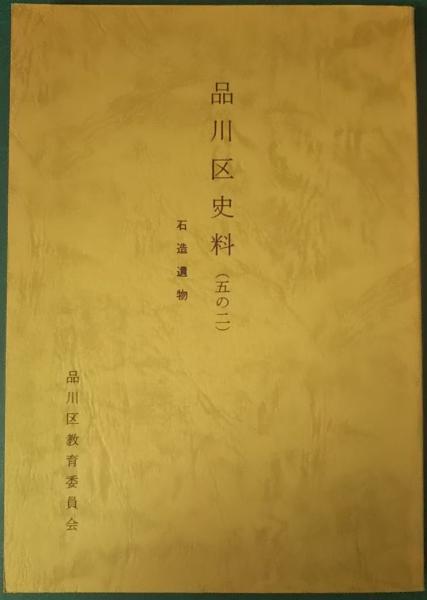 品川区史料（五の二）
石造遺物
品川区教育委員会